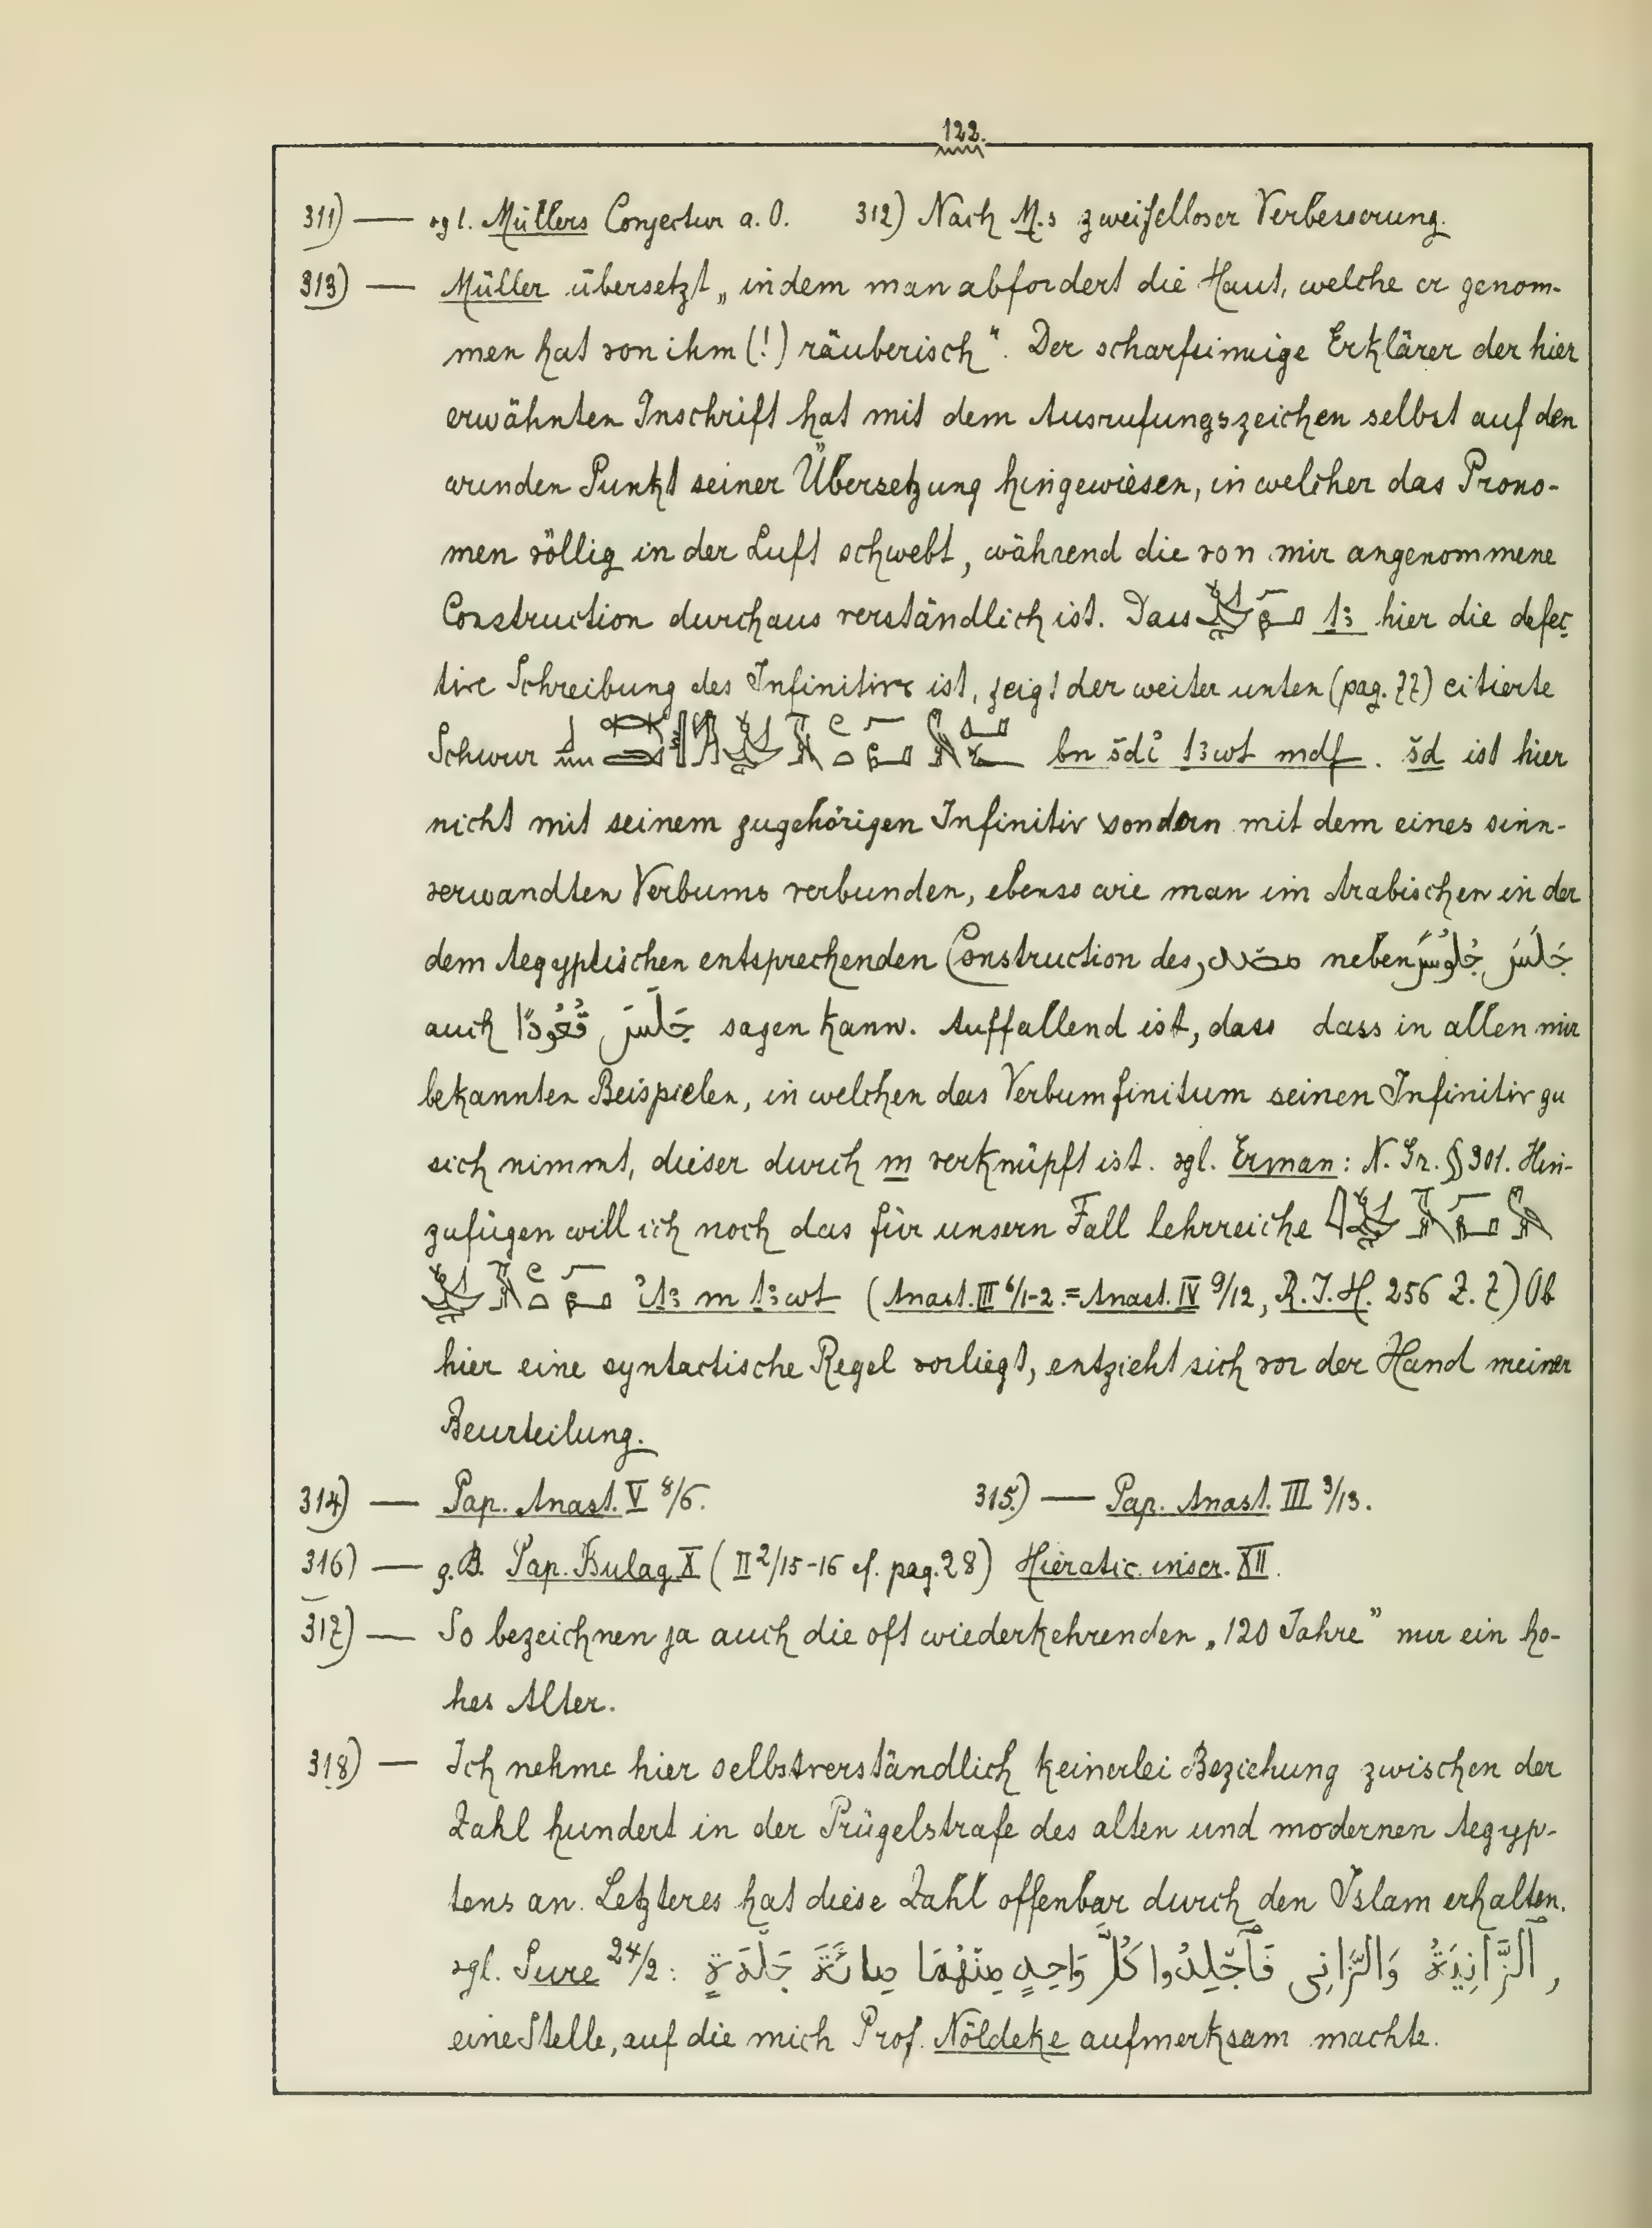 122.
311) — vgl. Müllers Conjectur a. O. 312) Nach M.s zweifelloser Verbesserung.
313) — Müller übersetzt „indem man abfordert die Haut, welche er genom-
men hat von ihm (!) räuberisch“. Der scharfsinnige Erklärer der hier
erwähnten Inschrift hat mit dem Ausrufungszeichen selbst auf den
wunden Punkt seiner Übersetzung hingewiesen, in welcher das Prono-
men völlig in der Luft schwebt, während die von mir angenommene
Construction durchaus verständlich ist. Dass ṯꜣ hier die defec
tive Schreibung des Infinitivs ist, zeigt der weiter unten (pag. 77) citierte
Schwur bn šdỉ ṯꜣwt mdf. šd ist hier
nicht mit seinem zugehörigen Infinitiv sondern mit dem eines sinn-
verwandten Verbums verbunden, ebenso wie man im Arabischen in der
dem Aegyptischen entsprechenden Construction des مصدر neben جَلَسَ جُلُوسً
auch جَلَسَ قُعُودًا sagen kann. Auffallend ist, dass dass in allen mir
bekannten Beispielen, in welchen das Verbum finitum seinen Infinitiv zu
sich nimmt, dieser durch m verknüpft ist. vgl. Erman: N. Gr. § 301. Hin-
zufügen will ich noch das für unsern Fall lehrreiche
ỉṯꜣ m ṯꜣwt (Anast. III 6/1-2. = Anast. IV 9/12, R. I. H. 256 Z. 7) Ob
hier eine syntactische Regel vorliegt, entzieht sich vor der Hand meiner
Beurteilung.
314) — Pap. Anast. V 8/6. 315.) — Pap. Anast. III 3/13.
316) — z.B. Pap. Bulaq X (II 2/15-16 cf. pag. 28) Hieratic inscr. XII.
317) — So bezeichnen ja auch die oft wiederkehrenden „120 Jahre” nur ein ho-
hes Alter.
318) — Ich nehme hier selbstverständlich keinerlei Beziehung zwischen der
Zahl hundert in der Prügelstrafe des alten und modernen Aegyp-
tens an. Letzteres hat diese Zahl offenbar durch den Islam erhalten.
vgl. Sure 24/2: اَلزَّانِيَةُ وَالزَّانِى فَاَجْلِدُوا كُلَّ وَاحِدٍ مِنْهُمَا مِائَةَ جَلْدَةٍ,
eine Stelle, auf die mich Prof. Nöldeke aufmerksam machte.